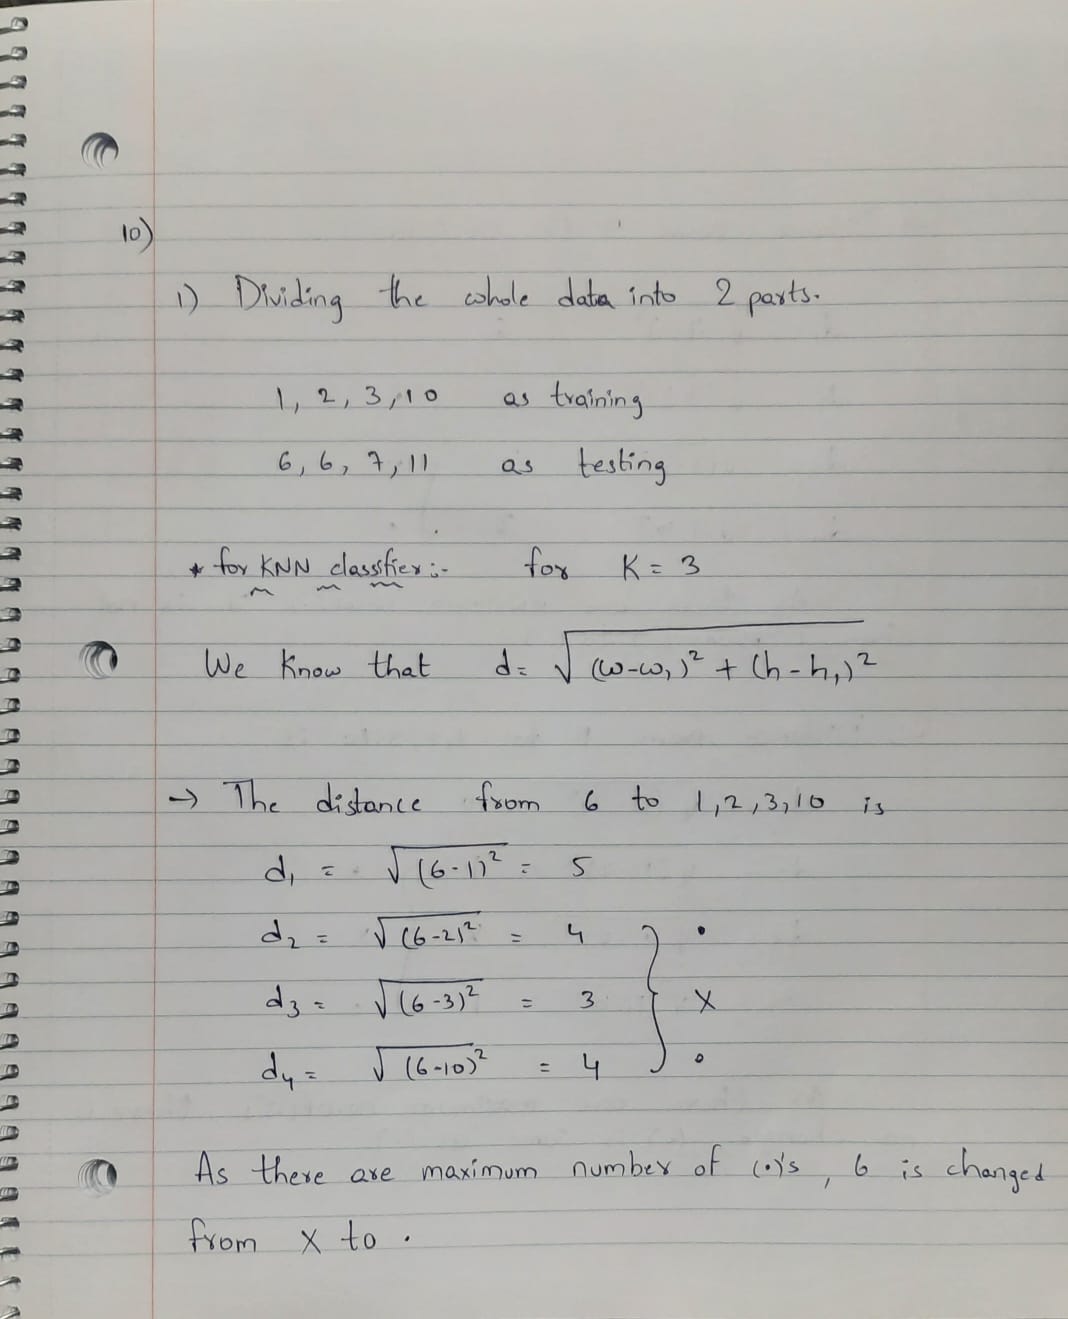 10)
1) Dividing the whole data into 2 parts.
1, 2, 3, 10 as training
6, 6, 7, 11 as testing
* for KNN classifier :- for K = 3
We know that d = √((w-w₁)² + (h-h₁)²)
→ The distance from 6 to 1,2,3,10 is
d₁ = √(6-1)² = 5
d₂ = √(6-2)² = 4 } •
d₃ = √(6-3)² = 3 } X
d₄ = √(6-10)² = 4 } •
As there are maximum number of (•)'s, 6 is changed
from X to •